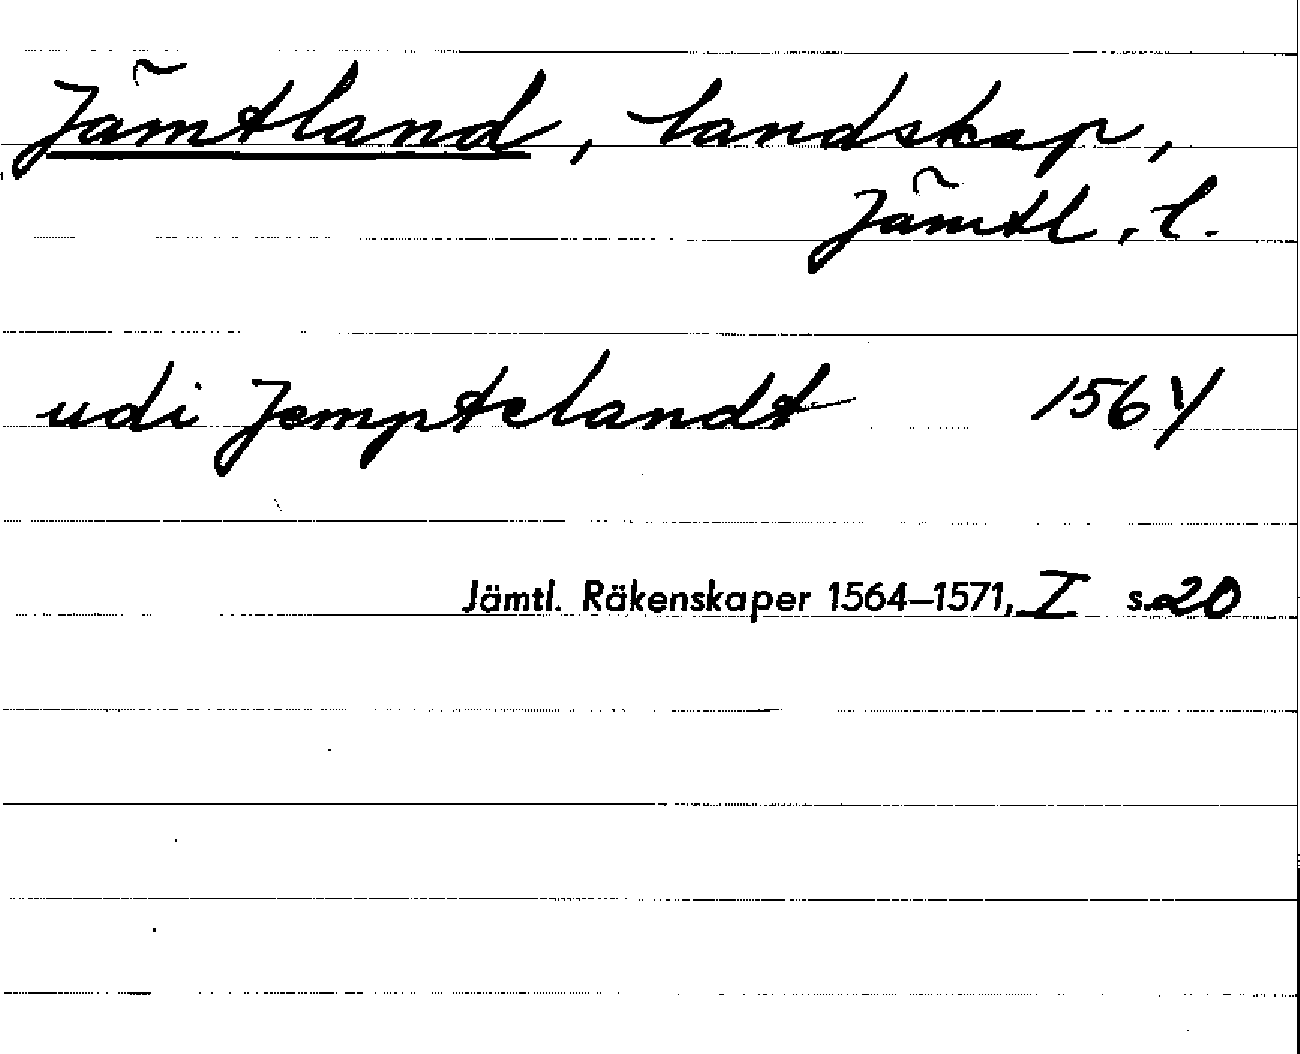 Jämtland, landskap,
Jämtl. l.
udi Jemptelandt 1564
Jämtl. Räkenskaper 1564–1571, I s. 20